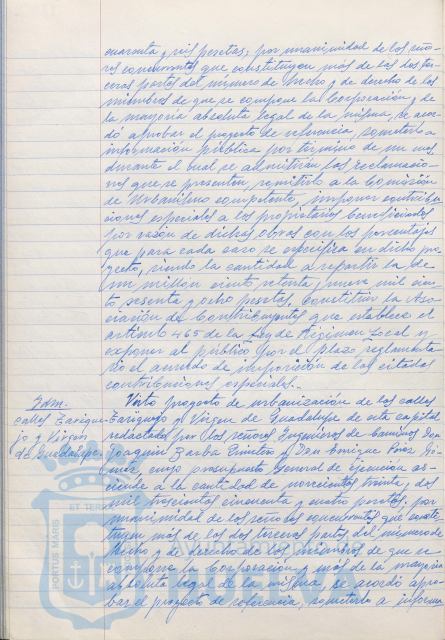 cuarenta y seis pesetas, por unanimidad de los seño-
res concurrentes que constituyen más de las dos ter-
ceras partes del número de hecho y de derecho de los
miembros de que se compone la Corporación y de
la mayoria absoluta legal de la misma, se acor-
dó aprobar el proyecto de referencia, someterlo a
información pública por término de un mes
durante el cual se admitirán las reclamacio-
nes que se presenten, remitirlo a la Comisión
de Urbanismo competente, imponer contribu-
ciones especiales a los propietarios beneficiados
por razón de dichas obras con los porcentajes
que para cada caso se especifica en dicho pro-
yecto, siendo la cantidad a repartir la de
un millón ciento setenta y nueve mil cien-
to sesenta y ocho pesetas, constituir la Aso-
ciación de Contribuyentes que establece el
artículo 465 de la Ley de Régimen Local y
exponer al público por el plazo reglamenta-
rio el acuerdo de imposición de las citadas
contribuciones especiales.-
Idm.
calles Earique-
jo y Virgen
de Guadalupe.
Visto proyecto de urbanización de las calles
y Virgen de Guadalupe de esta capital
redactado por los señores Ingenieros de Caminos Don
Joaquín Barba y Don Enrique Pérez Gó-
mez, cuyo presupuesto general de ejecución as-
ciende a la cantidad de novecientas treinta y dos
mil trescientas cincuenta y cuatro pesetas, por
unanimidad de los señores concurrentes que consti-
tuyen más de las dos terceras partes del número de
hecho y de derecho de los miembros de que se
compone la Corporación y más de la mayoria
absoluta legal de la misma, se acordó apro-
bar el proyecto de referencia, someterlo a informa
PORTUS MARIS
ET TERRAE
HUELVA